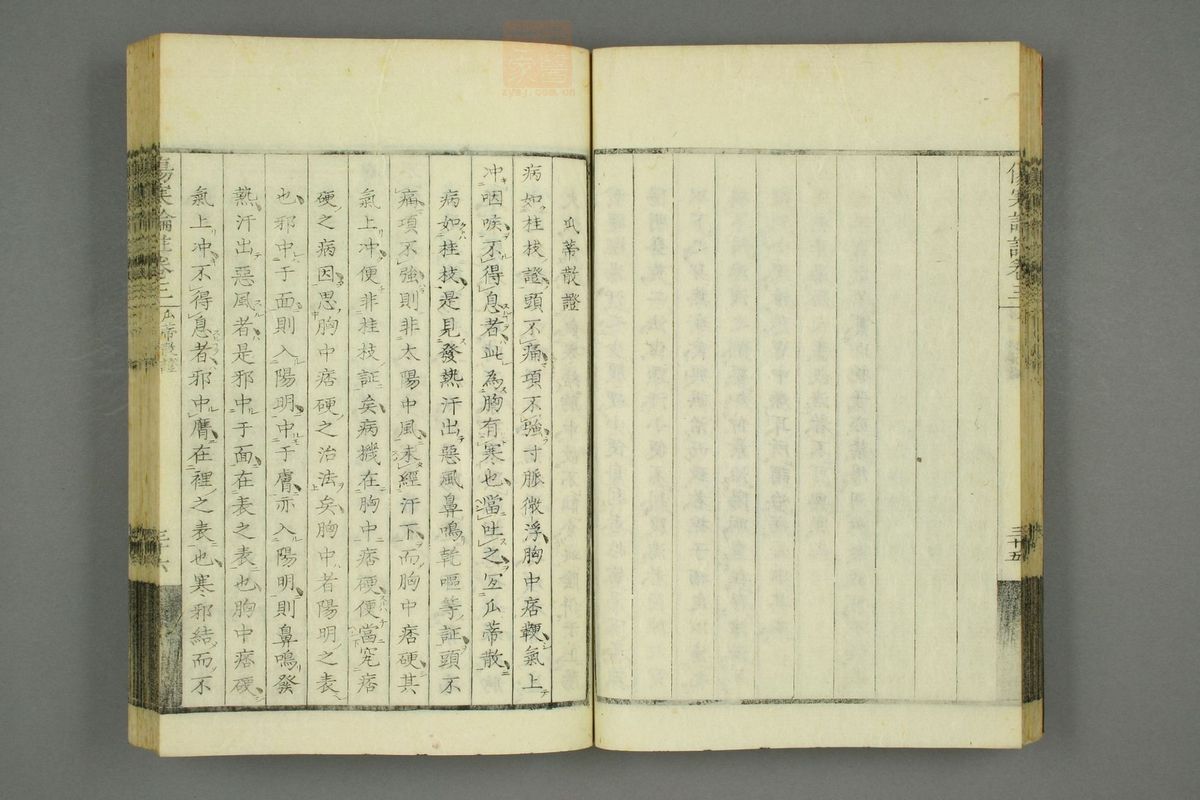 三十五
瓜蒂散證
病如桂枝證頭不痛項不強寸脈微浮胸中痞鞕氣上
冲咽喉不得息者此為胸有寒也當吐之宜瓜蒂散
病如桂枝是見發熱汗出惡風鼻鳴乾嘔等証頭不
痛項不強則非太陽中風未經汗下而胸中痞硬其
氣上冲便非桂枝証矣病機在胸中痞硬便當究痞
硬之病因思胸中痞硬之治法矣胸中者陽明之表
也邪中于面則入陽明中于膺亦入陽明則鼻鳴發
熱汗出惡風者是邪中于面在表之表也胸中痞硬
氣上冲不得息者邪中膺在裡之表也寒邪結而不
傷寒論註卷三 瓜蒂散證
三十六
zysj.com.cn